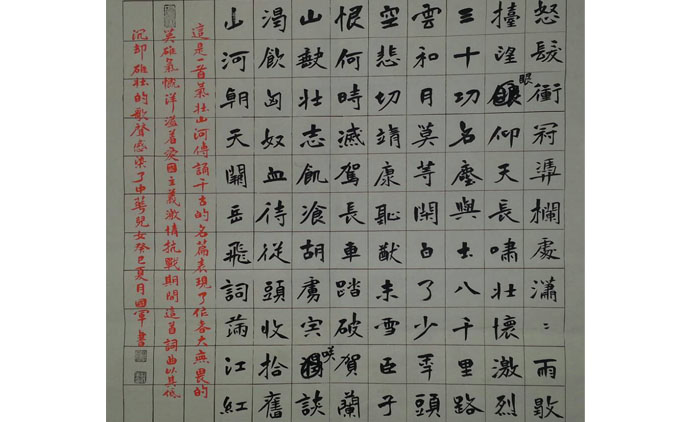 怒髮衝冠凴欄處瀟〻雨歇
擡望眼仰天長嘯壯懷激烈
三十功名塵與土八千里路
雲和月莫等閒白了少年頭
空悲切靖康恥猷未雪臣子
恨何時滅駕長車踏破賀蘭
山缺壯志飢湌胡虜宍咲談
渴飲匈奴血待從頭收拾舊
山河朝天闕岳飛詞滿江紅
這是一首氣壯山河傳誦千古的名篇表現了作者大無畏的
英雄氣慨洋溢着愛國主義激情抗戰期間這首詞曲以其低
沉却雄壯的歌聲感染了中華兒女癸巳夏月國軍書